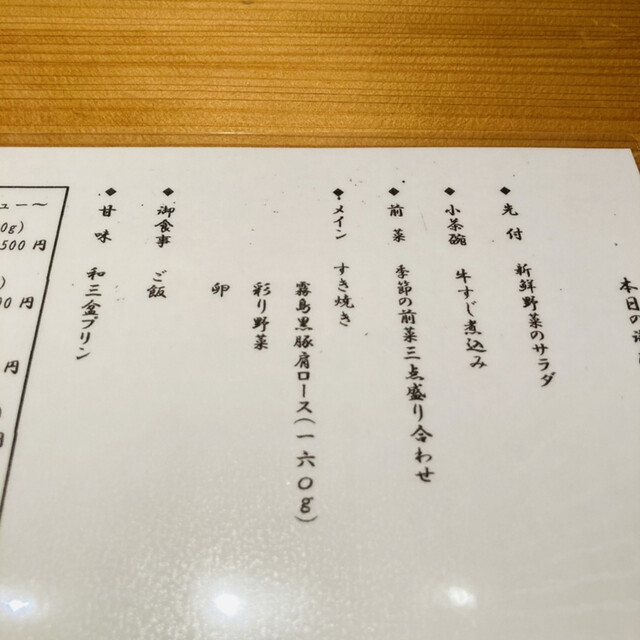 本日の
◆先付 新鮮野菜のサラダ
◆小茶碗 牛すじ煮込み
◆前菜 季節の前菜三点盛り合わせ
◆メイン すき焼き
霧島黒豚肩ロース(一六〇g)
彩り野菜
卵
◆御食事 ご飯
◆甘味 和三盆プリン
ュー〜
0g)
500円
)
00円
円
)
円